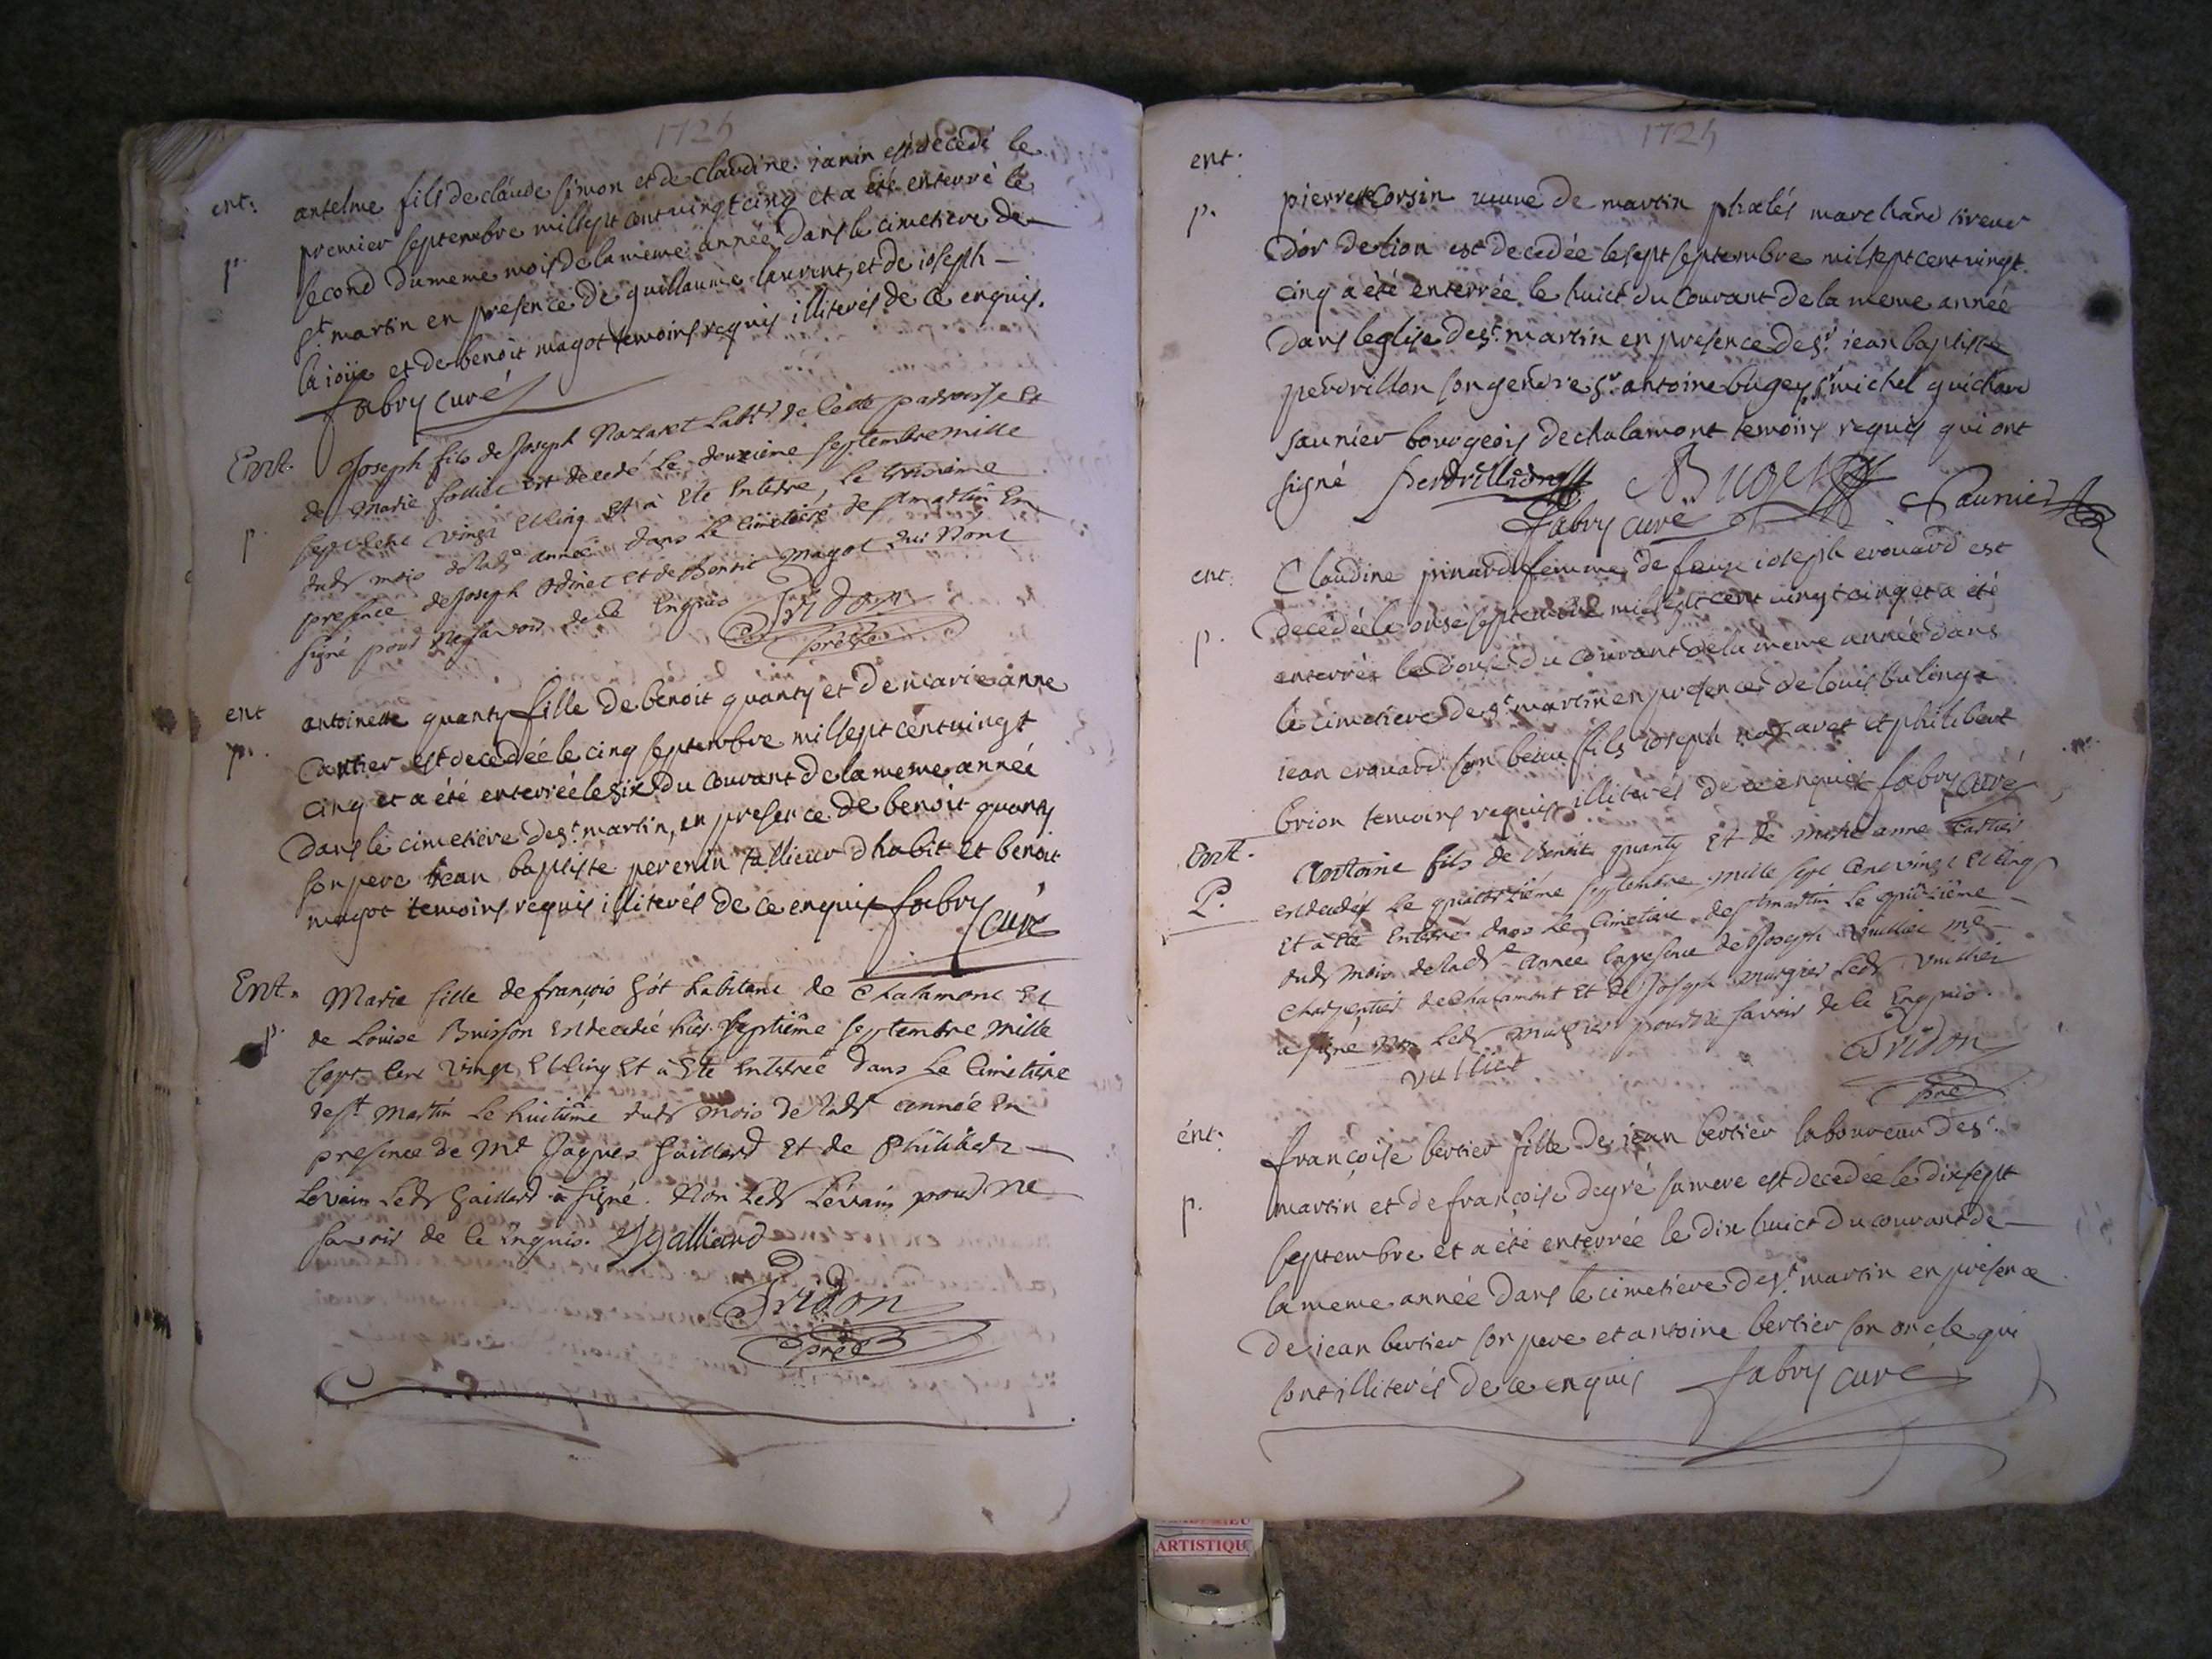 1725
ent:
p.
antelme fils de claude simon et de claudine ianin est decedé le
premier septembre mil sept cent vingt cinq et a été enterré le
second du meme mois de la meme année dans le cimetiere de
st martin en presence de guillaume laurent, et de ioseph
la ioïe et de benoit magot temoins requis illiterés de ce enquis.
fabry curé
Ent.
p.
Joseph fils de Joseph Nazaret Labr de cette parroisse et
de Marie est decedé Le deuxième septembre mille
sept cent vingt et cinq et à Eté Enterré Le troisième
dudt mois de ladte année dans Le Cimetière de st martin En
presence de Joseph odinet et de Benoit magot qui n'ont
signé pour ne savoir de ce Enquis Fridon
prêtre
ent
p.
antoinette quanty fille de benoit quanty et de marie anne
Cartier est decedée le cinq septembre mil sept cent vingt
cinq et a été enterrée le six du courant de la meme année
dans le cimetiere de st martin, en presence de benoit quanty
son pere iean baptiste perenin tallieur d habit et benoit
magot temoins requis illiterés de ce enquis fabry
curé
Ent.
p.
Marie fille de françois Gôt habitant de Chalamont Et
de Louise Buisson est decedée hier septième septembre mille
sept cent vingt Et cinq Et à Eté Enterrée dans Le Cimetière
de st Martin Le huitième dudt mois de ladte année En
presence de Mr Jaques Gaillard Et de Philibert
Levrain Ledt Gaillard a signé. Non Ledt Levrain pour ne
savoir de ce Enquis. JGalliard
Fridon
pre
1725
ent:
p.
pierrette Corsin veuve de martin phalés marchand tireur
d'or de lion est decedée le sept septembre mil sept cent vingt
cinq a été enterrée le huict du courant de la meme année
dans leglise de st martin en presence de sr iean baptiste
perdrillon son gendre sr antoine bugey, sr michel guichard
saunier bourgeois de chalamont temoins requis qui ont
signé Perdrillion Bugey Saunier
fabry curé
ent:
p.
Claudine pinard femme de feu ioseph crouard est
decedée le onse septembre mil sept cent vingt cinq et a été
enterrée le douse du courant de la meme année dans
le cimetiere de st martin en presence de louis bulinge
iean crouard son beau fils ioseph nazaret et philibert
brion temoins requis illiterés de ce enquis fabry curé
Ent.
P.
Antoine fils de Benoit quanty Et de Marie anne Cartier
est decedé Le quatorzième septembre mille sept cent vingt Et cinq
Et à Eté Enterré dans Le Cimetière de st martin Le quinzième
dudt mois de ladte Année En presence de Joseph Vulliet me
charpentier de Chalamont Et de Joseph murgier Ledt Vulliet
a signé Non Ledt Murgier pour ne savoir de ce Enquis.
Vulliet Fridon
pre
ent:
p.
françoise bertier fille de iean bertier laboureur de st
martin et de françoise degré sa mere est decedée le dix sept
septembre et a été enterrée le dix huict du courant de
la meme année dans le cimetiere de st martin en presence
de iean bertier son pere et antoine bertier son oncle qui
sont illiterés de ce enquis fabry curé
ARTISTIQU